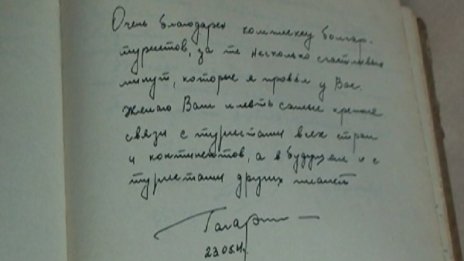 Очень благодарен комплексу болгар.
туристов, за те несколько счастливых
минут, которые я провёл у Вас.
Желаю Вам иметь самые крепкие
связи с туристами всех стран
и континентов, а в будущем и с
туристами других планет
Гагарин